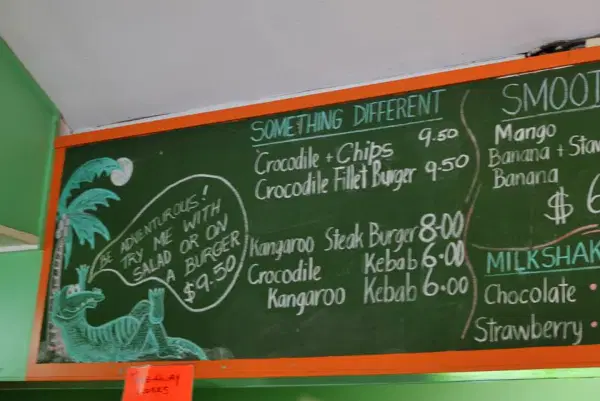 BE ADVENTUROUS!
TRY ME WITH
SALAD OR ON
A BURGER
$9.50
SOMETHING DIFFERENT
Crocodile + Chips 9.50
Crocodile Fillet Burger 9.50
Kangaroo Steak Burger 8.00
Crocodile Kebab 6.00
Kangaroo Kebab 6.00
SMOOT
Mango
Banana +
Banana
$6
MILKSHAK
Chocolate •
Strawberry •